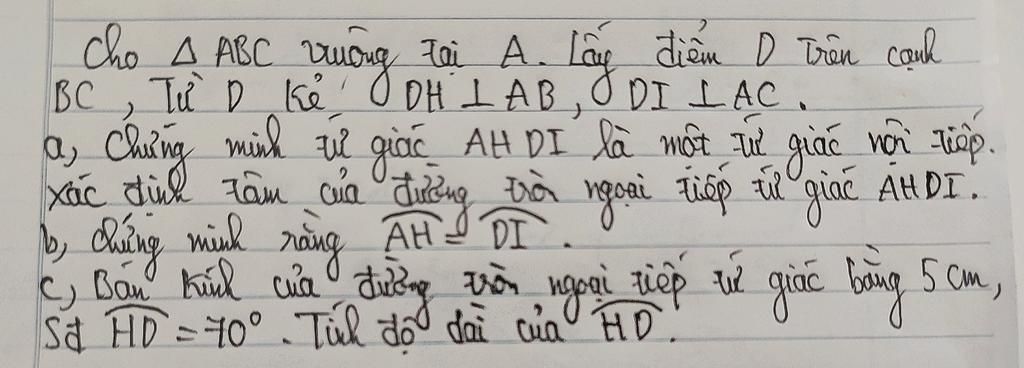 Cho △ ABC vuông tại A. Lấy điểm D trên cạnh
BC, Từ D kẻ DH ⊥ AB, DI ⊥ AC.
a, Chứng minh tứ giác AHDI là một tứ giác nội tiếp.
Xác định tâm của đường tròn ngoại tiếp tứ giác AHDI.
b, Chứng minh rằng \overset{\frown}{AH} = \overset{\frown}{DI}.
c, Bán kính của đường tròn ngoại tiếp tứ giác bằng 5 cm,
Sđ \overset{\frown}{HD} = 70°. Tính độ dài của \overset{\frown}{HD}.